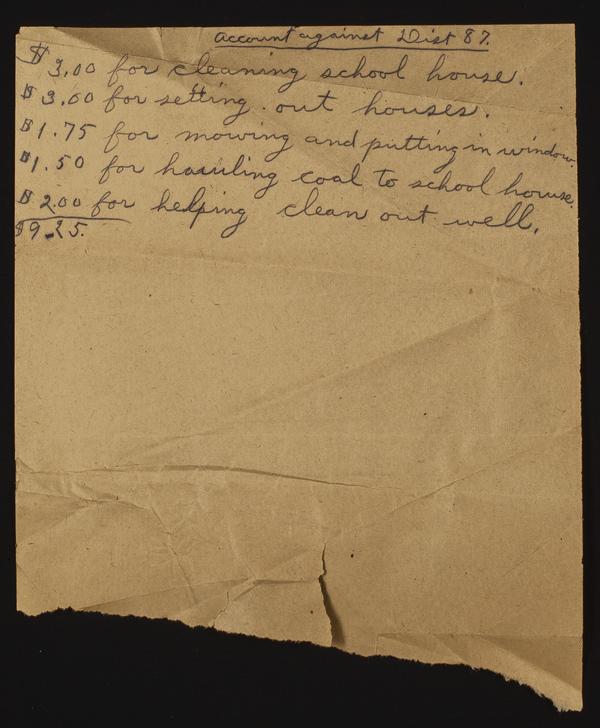 account against Dist 87.
$3.00 for cleaning school house.
$3.00 for setting out houses.
$1.75 for mowing and putting in window.
$1.50 for hauling coal to school house.
$2.00 for helping clean out well.
$9.25.